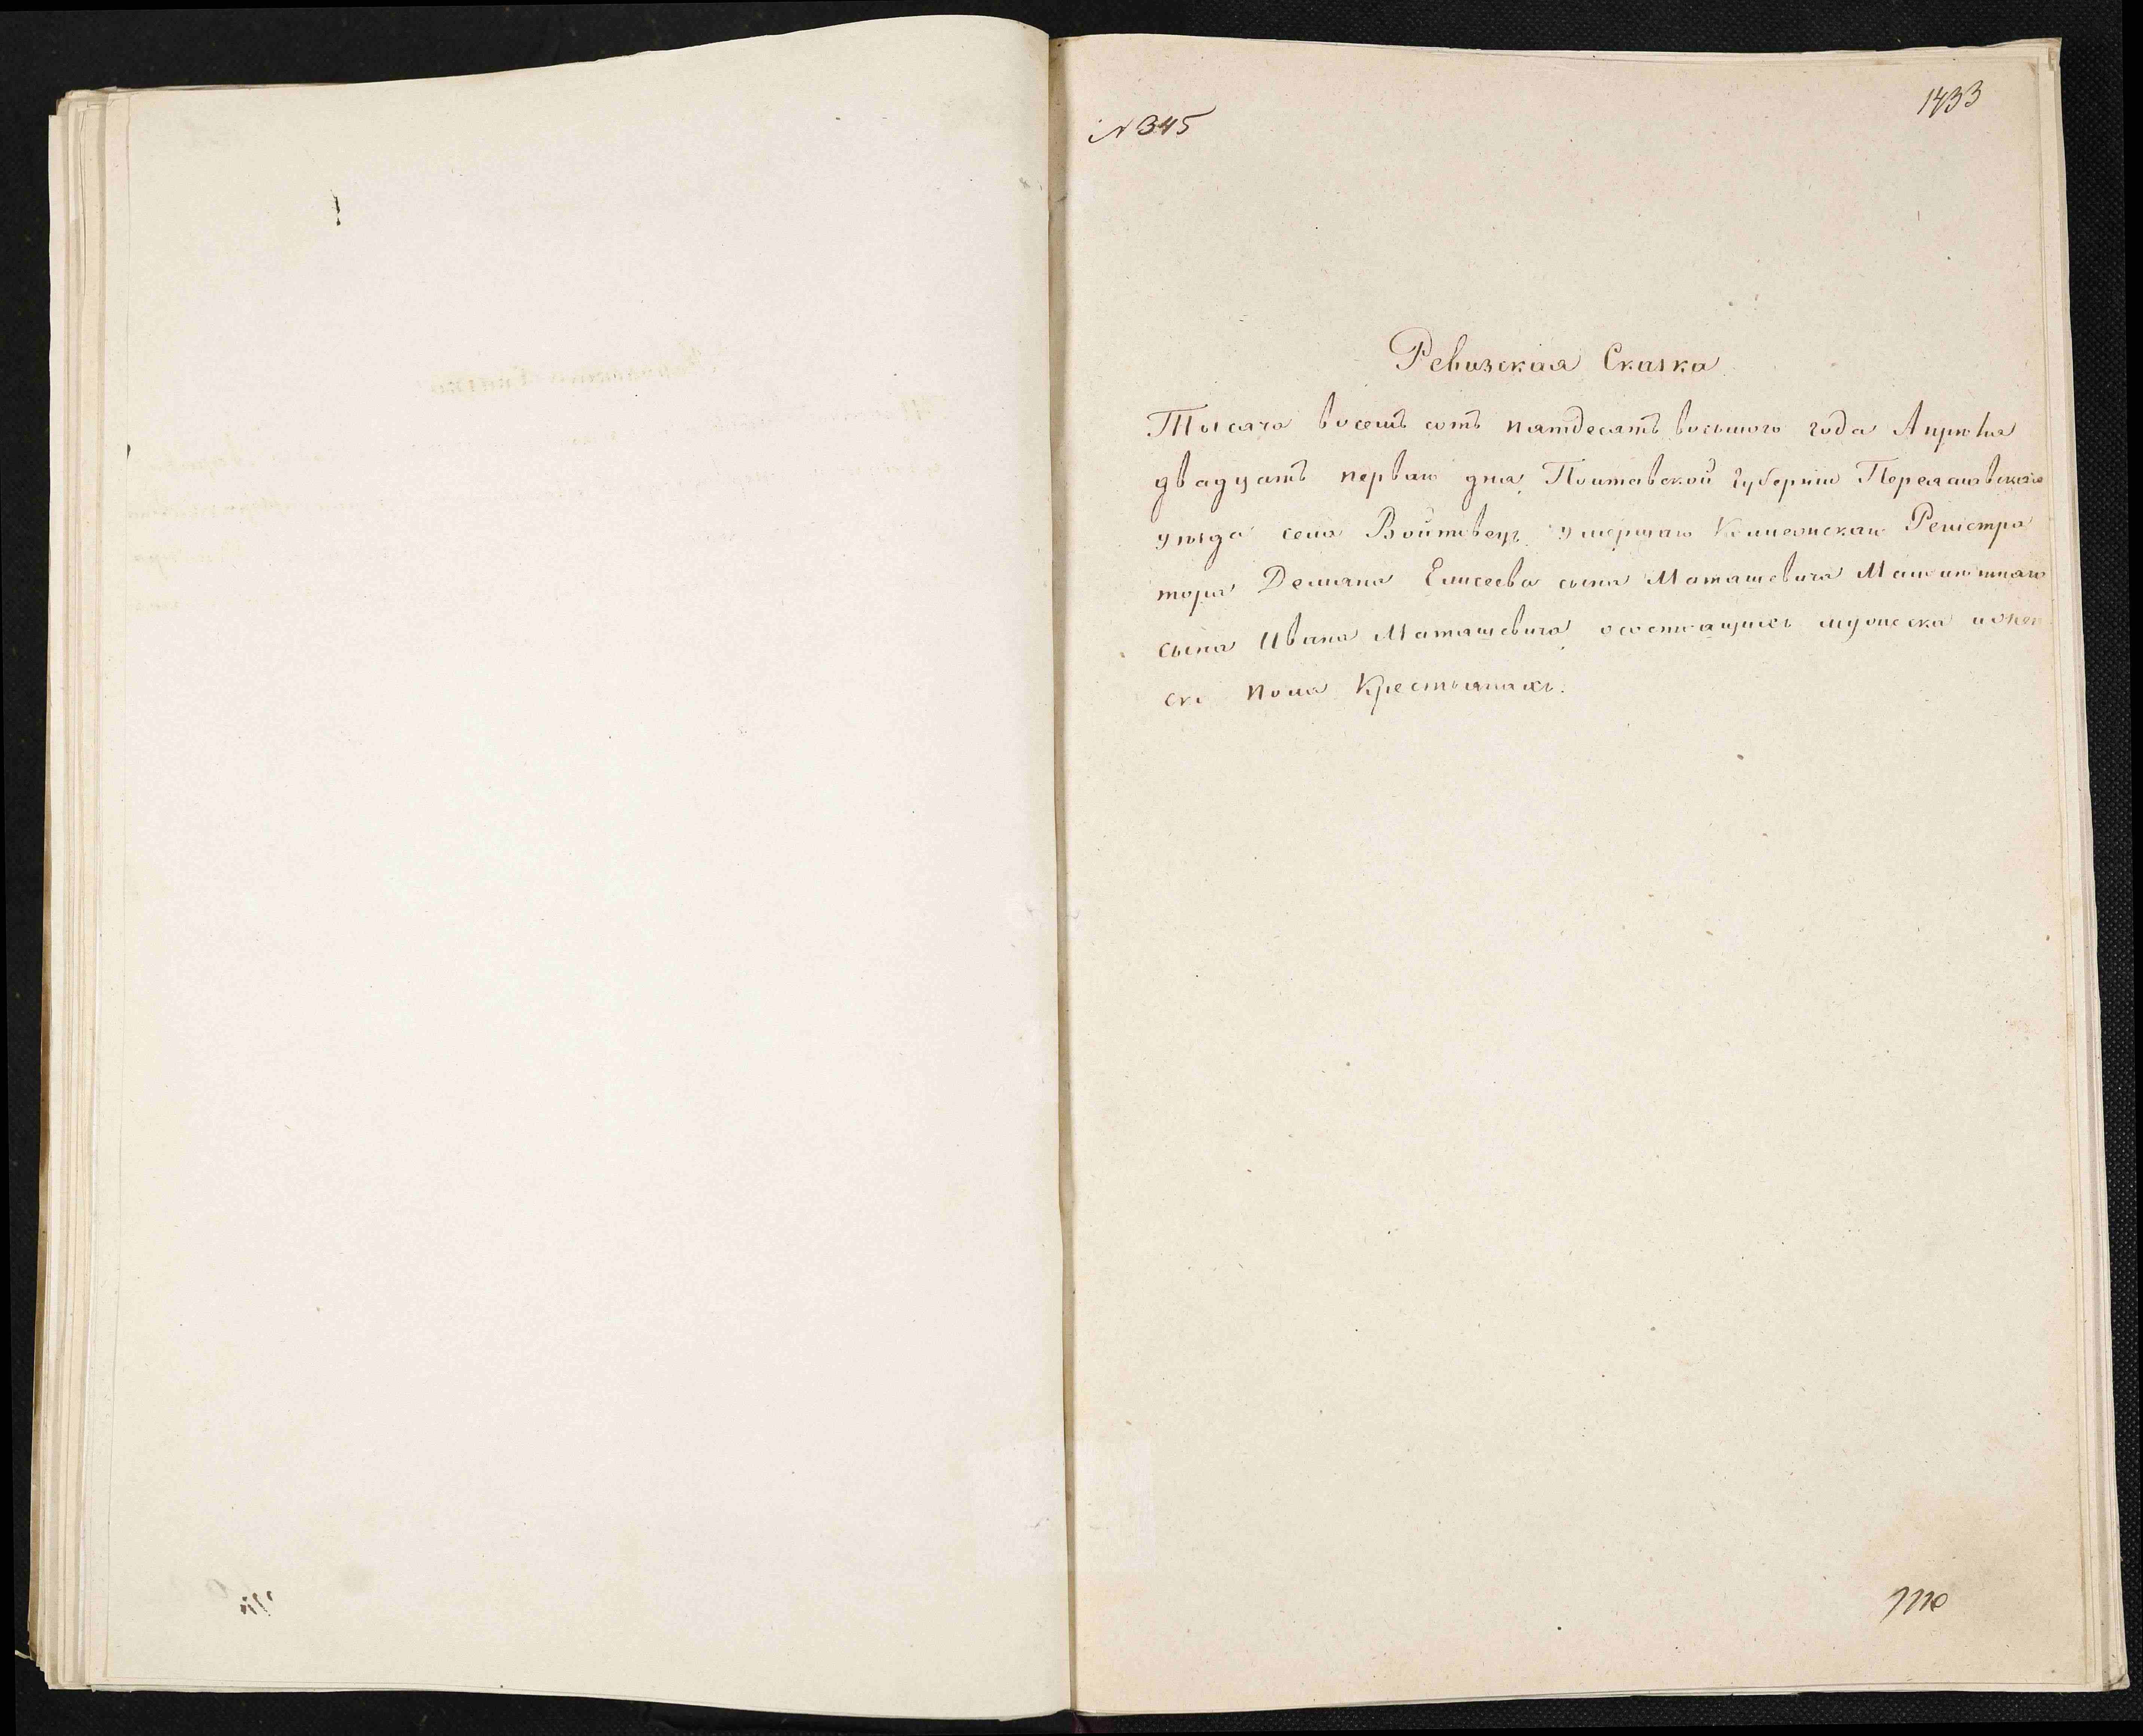 №345
1433
Ревизская Сказка
Тысяча восемь сотъ пятдесятъ восьмого года Апрѣля
двадцать перваго дня, Полтавской Губерніи Переяславскаго
уѣзда села Войтовецъ умершаго Колежскаго Регистра
тора Демяна Елисеева сына Маташевича Малолѣтнаго
сына Ивана Маташевича осостоящихъ мужеска и жен
ска пола Крестьянахъ.